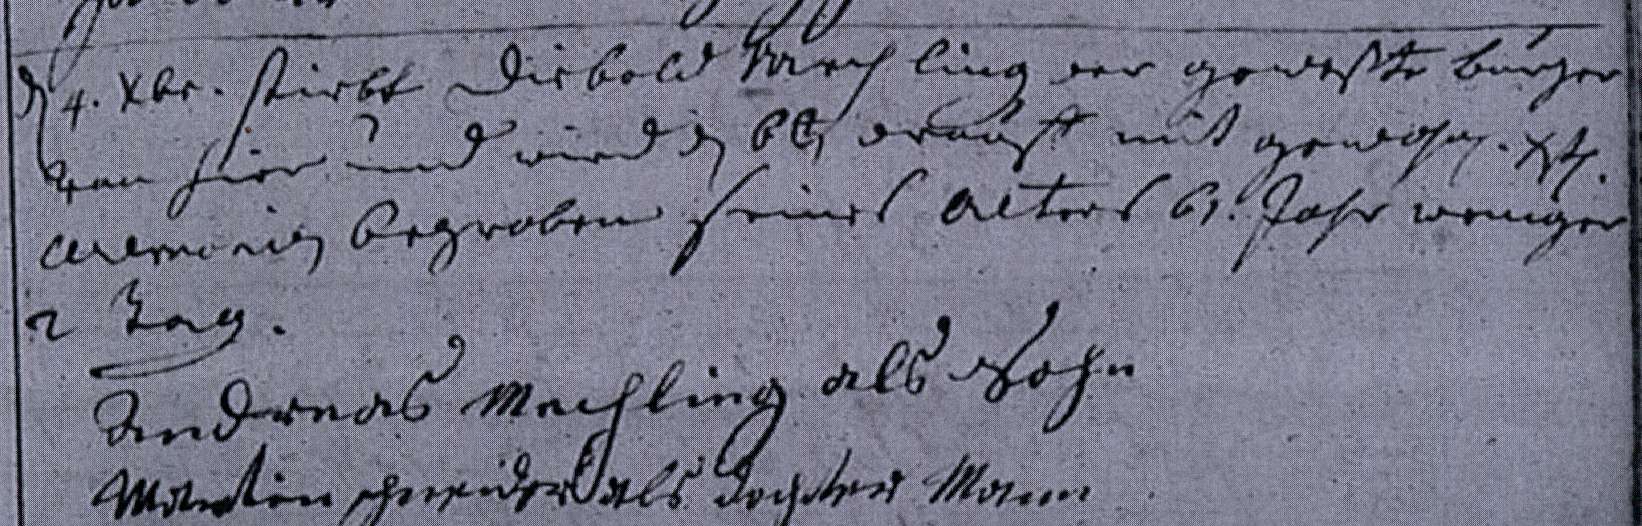 d 4. Xbr. stirbt Diebold Mechling der geweste burger
von hier und wird d 6t drauf mit gewohn. Xstl.
ceremonien begraben seines Alters 61. Jahr weniger
2 Tag.
Andreas Mechling als Sohn
Martin schneider als dochter Mann